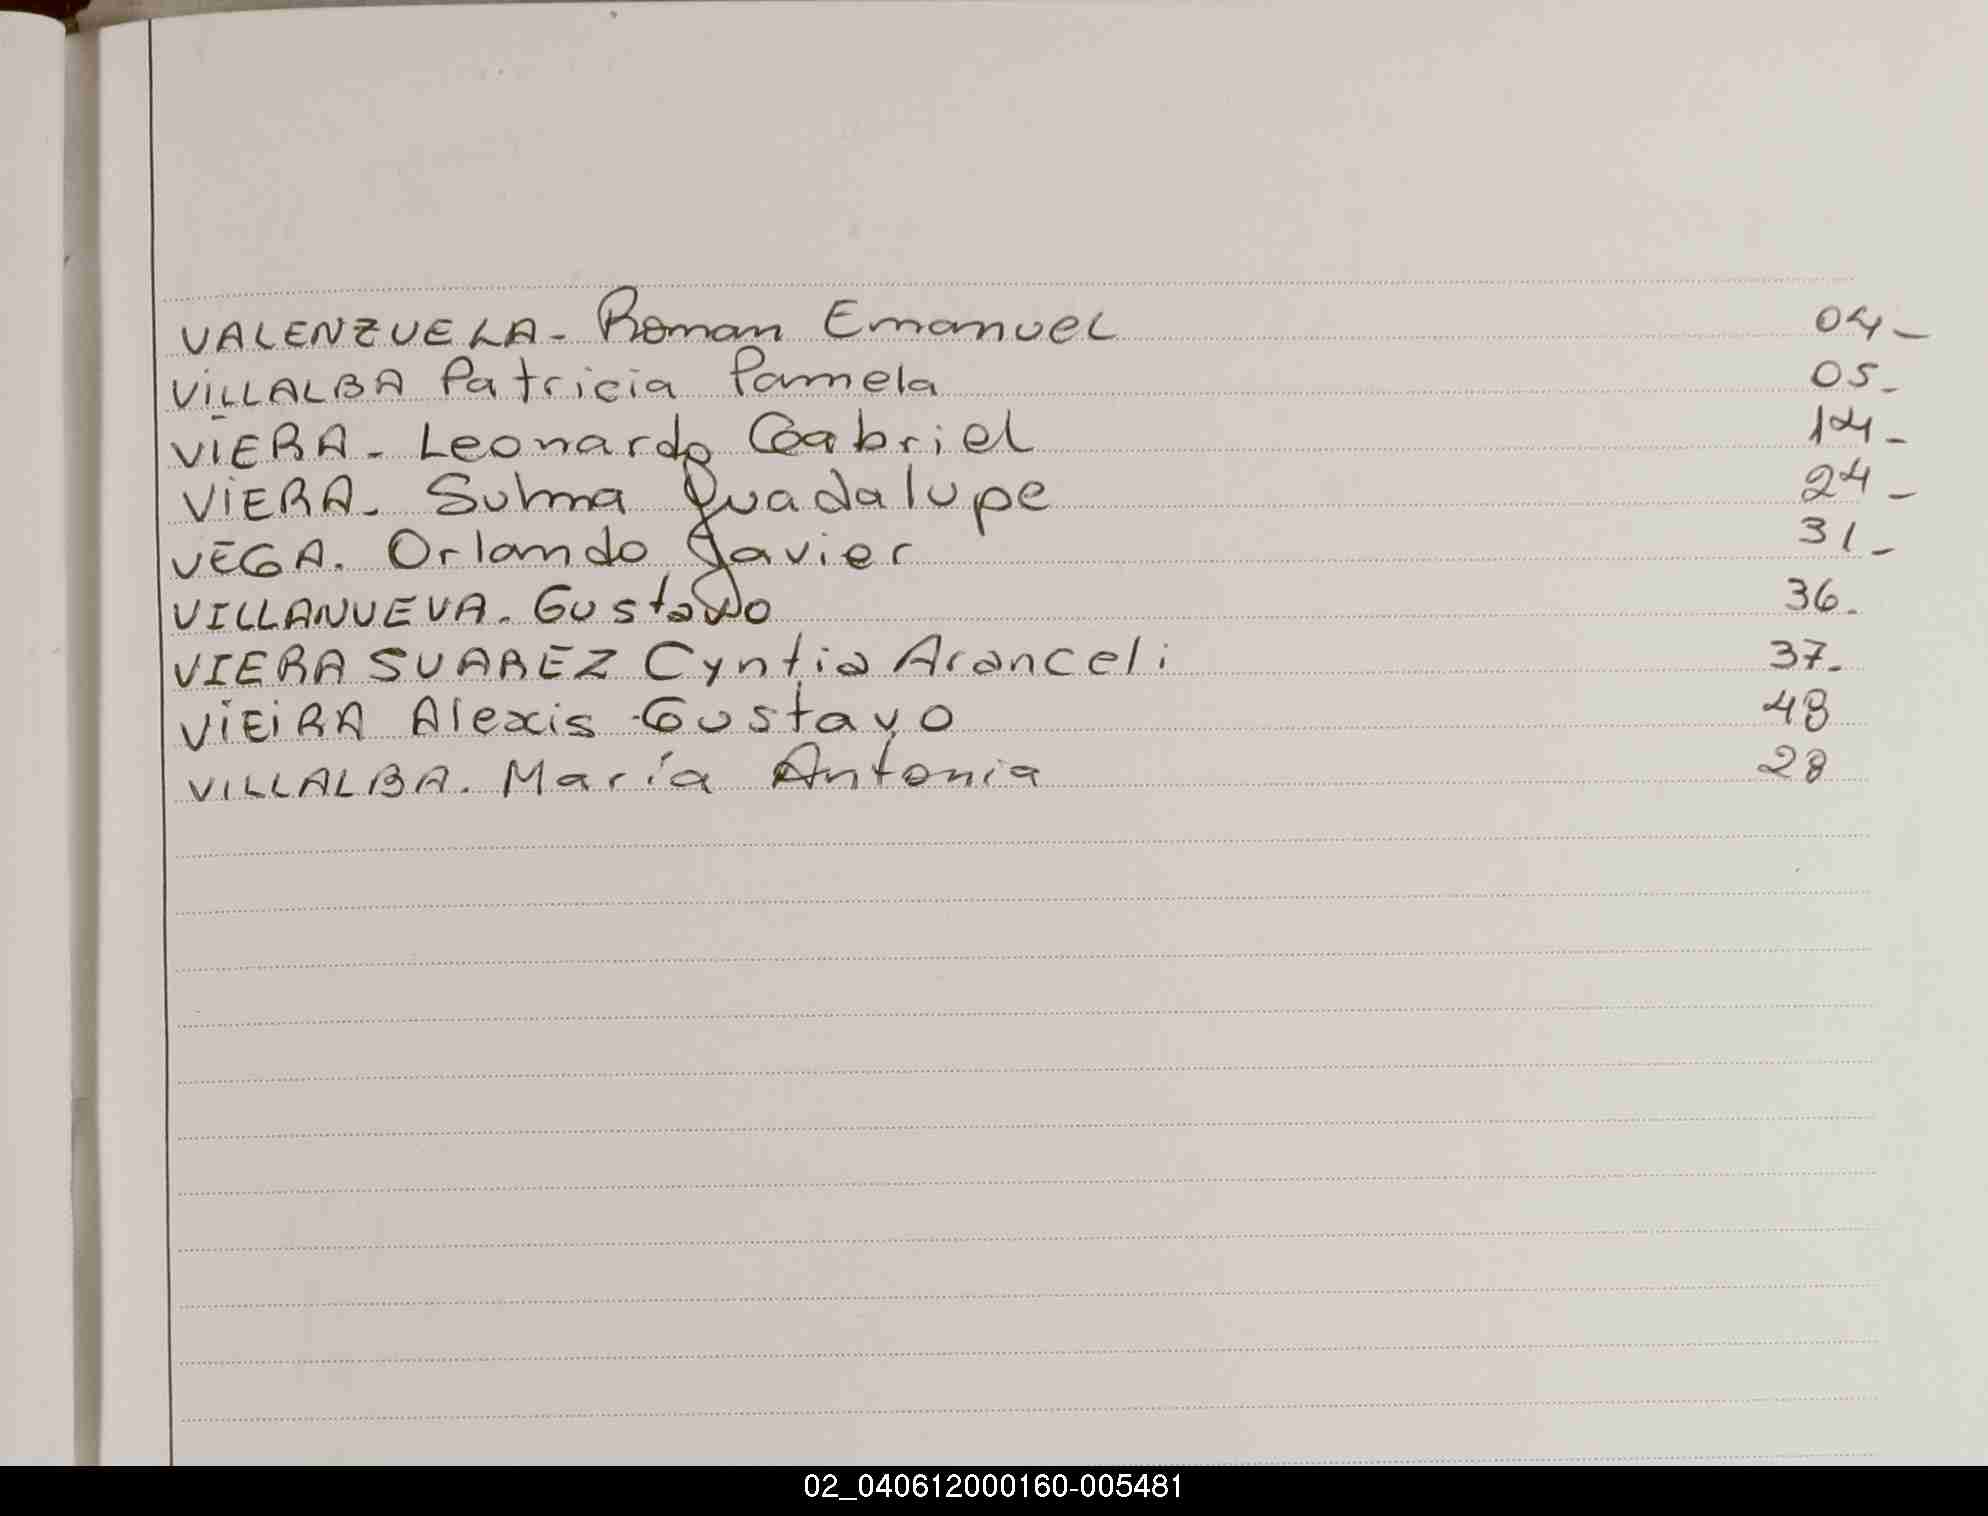 VALENZUELA- Roman Emanuel 04-
VILLALBA Patricia Pamela 05-
VIERA- Leonardo Gabriel 14-
VIERA. Sulma Guadalupe 24-
VEGA. Orlando Javier 31-
VILLANUEVA. Gustavo 36.
VIERA SUAREZ Cyntia Aranceli 37.
VIEIRA Alexis Gustavo 48
VILLALBA. María Antonia 28
02_040612000160-005481